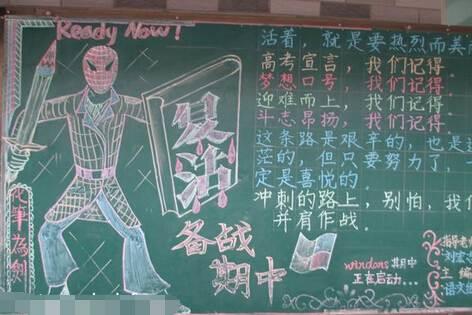 Ready Now!
复活
化筆為劍
备战
期中
活着，就是要热烈而奏
高考宣言，我们记得．
梦想口号，我们记得．
迎难而上，我们记得．
斗志昂扬，我们记得．
这条路是艰辛的，也是迷
茫的，但只要努力了，
定是喜悦的．
冲刺的路上，别怕，我们
并肩作战．
windows 期中
正在启动...
指导老
刘宏
主
语文组